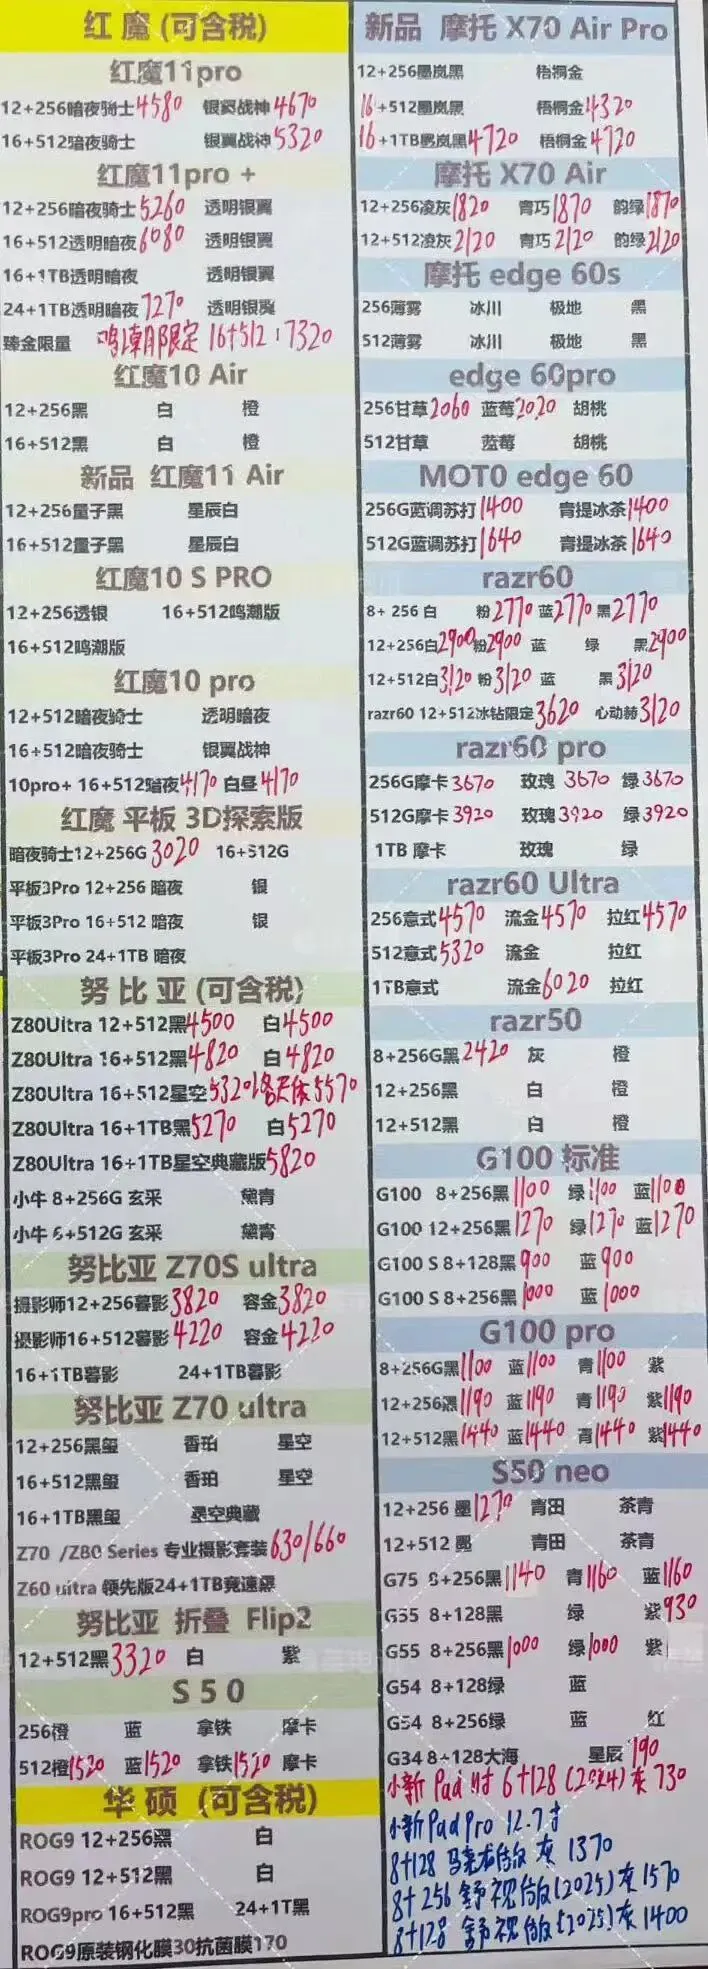 红 魔 (可含税)
红魔11pro
12+256暗夜骑士4580 银翼战神4670
16+512暗夜骑士 银翼战神5320
红魔11pro +
12+256暗夜骑士5260 透明银翼
16+512透明暗夜6080 透明银翼
16+1TB透明暗夜 透明银翼
24+1TB透明暗夜7270 透明银翼
臻金限量 鸣潮限定 16+512:7320
红魔10 Air
12+256黑 白 橙
16+512黑 白 橙
新品 红魔11 Air
12+256量子黑 星辰白
16+512量子黑 星辰白
红魔10 S PRO
12+256透银 16+512鸣潮版
16+512鸣潮版
红魔10 pro
12+512暗夜骑士 透明暗夜
16+512暗夜骑士 银翼战神
10pro+ 16+512暗夜4170 白昼4170
红魔 平板 3D探索版
暗夜骑士12+256G 3020 16+512G
平板3Pro 12+256 暗夜 银
平板3Pro 16+512 暗夜 银
平板3Pro 24+1TB 暗夜
努 比 亚 (可含税)
Z80Ultra 12+512黑4500 白4500
Z80Ultra 16+512黑4820 白4820
Z80Ultra 16+512星空5320 5570
Z80Ultra 16+1TB黑5270 白5270
Z80Ultra 16+1TB星空典藏版5820
小牛 8+256G 玄采 黛青
小牛 6+512G 玄采 黛青
努比亚 Z70S ultra
摄影师12+256暮影3820 容金3820
摄影师16+512暮影4220 容金4220
16+1TB暮影 24+1TB暮影
努比亚 Z70 ultra
12+256黑玺 香珀 星空
16+512黑玺 香珀 星空
16+1TB黑玺 星空典藏
Z70 /Z80 Series 专业摄影套装630/660
Z60 ultra 领先版24+1TB竞速黑
努比亚 折叠 Flip2
12+512黑3320 白 紫
S 5 0
256橙 蓝 拿铁 摩卡
512橙1520 蓝1520 拿铁1520 摩卡
华 硕 (可含税)
ROG9 12+256黑 白
ROG9 12+512黑 白
ROG9pro 16+512黑 24+1T黑
ROG9原装钢化膜30抗菌膜170
新品 摩托 X70 Air Pro
12+256墨岚黑 梧桐金
16+512墨岚黑 梧桐金4320
16+1TB墨岚黑4720 梧桐金4720
摩托 X70 Air
12+256凌灰1820 青巧1870 韵绿1870
12+512凌灰2120 青巧2120 韵绿2120
摩托 edge 60s
256薄雾 冰川 极地 黑
512薄雾 冰川 极地 黑
edge 60pro
256甘草2060 蓝莓2020 胡桃
512甘草 蓝莓 胡桃
MOTO edge 60
256G蓝调苏打1400 青提冰茶1400
512G蓝调苏打1640 青提冰茶1640
razr60
8+ 256 白 粉2770 蓝2770 黑2770
12+256白2900 粉2900 蓝 绿 黑2900
12+512白3120 粉3120 蓝 黑3120
razr60 12+512冰钻限定3620 心动赫3120
razr60 pro
256G摩卡3670 玫瑰 3670 绿3670
512G摩卡3920 玫瑰3920 绿3920
1TB 摩卡 玫瑰 绿
razr60 Ultra
256意式4570 流金4570 拉红4570
512意式5320 流金 拉红
1TB意式 流金6020 拉红
razr50
8+256G黑2420 灰 橙
12+256黑 白 橙
12+512黑 白 橙
G100 标准
G100 8+256黑1100 绿1100 蓝1100
G100 12+256黑1270 绿1270 蓝1270
G100 S 8+128黑900 蓝900
G100 S 8+256黑1000 蓝1000
G100 pro
8+256G黑1100 蓝1100 青1100 紫
12+256黑1190 蓝1190 青1190 紫1190
12+512黑1440 蓝1440 青1440 紫1440
S50 neo
12+256 墨1270 青田 茶青
12+512 墨 青田 茶青
G75 8+256黑1140 青1160 蓝1160
G55 8+128黑 绿 紫930
G55 8+256黑1000 绿1000 紫
G54 8+128绿 蓝
G54 8+256绿 蓝 红
G34 8+128大海 星辰190
小新 Pad 11寸 6+128 (2024) 灰 730
小新PadPro 12.7寸
8+128 灰 1370
8+256 舒视版(2025)灰1570
8+128 舒视版(2025)灰1400